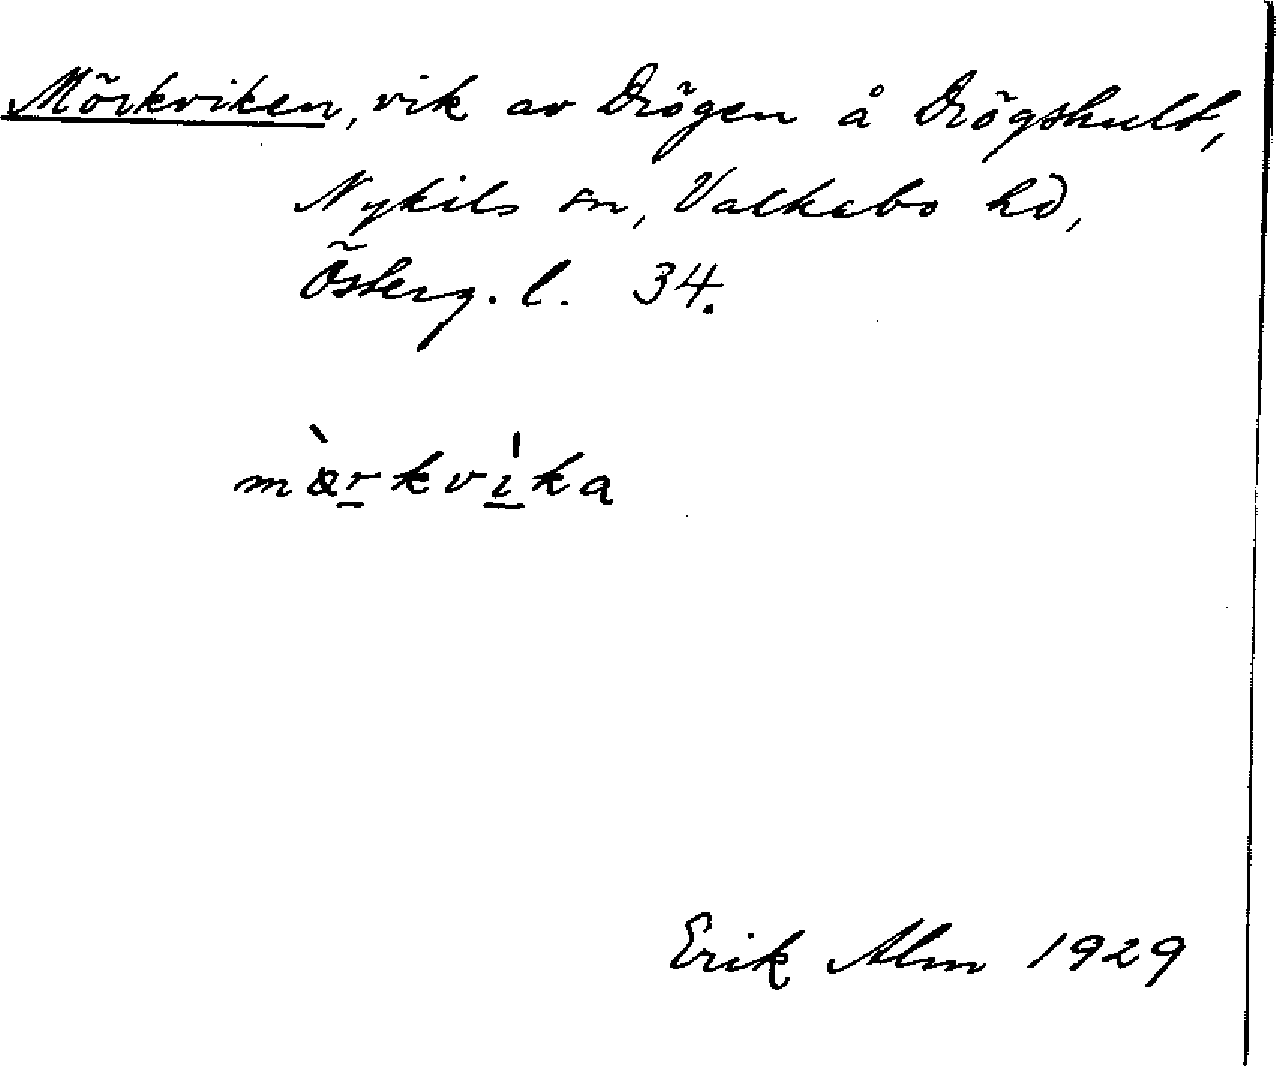 Mörkviken, vik av Drögen å Drögshult,
Nykils sn, Valkebo hd,
Österg. l. 34.
mæ̀rkvi̍ka
Erik Alm 1929